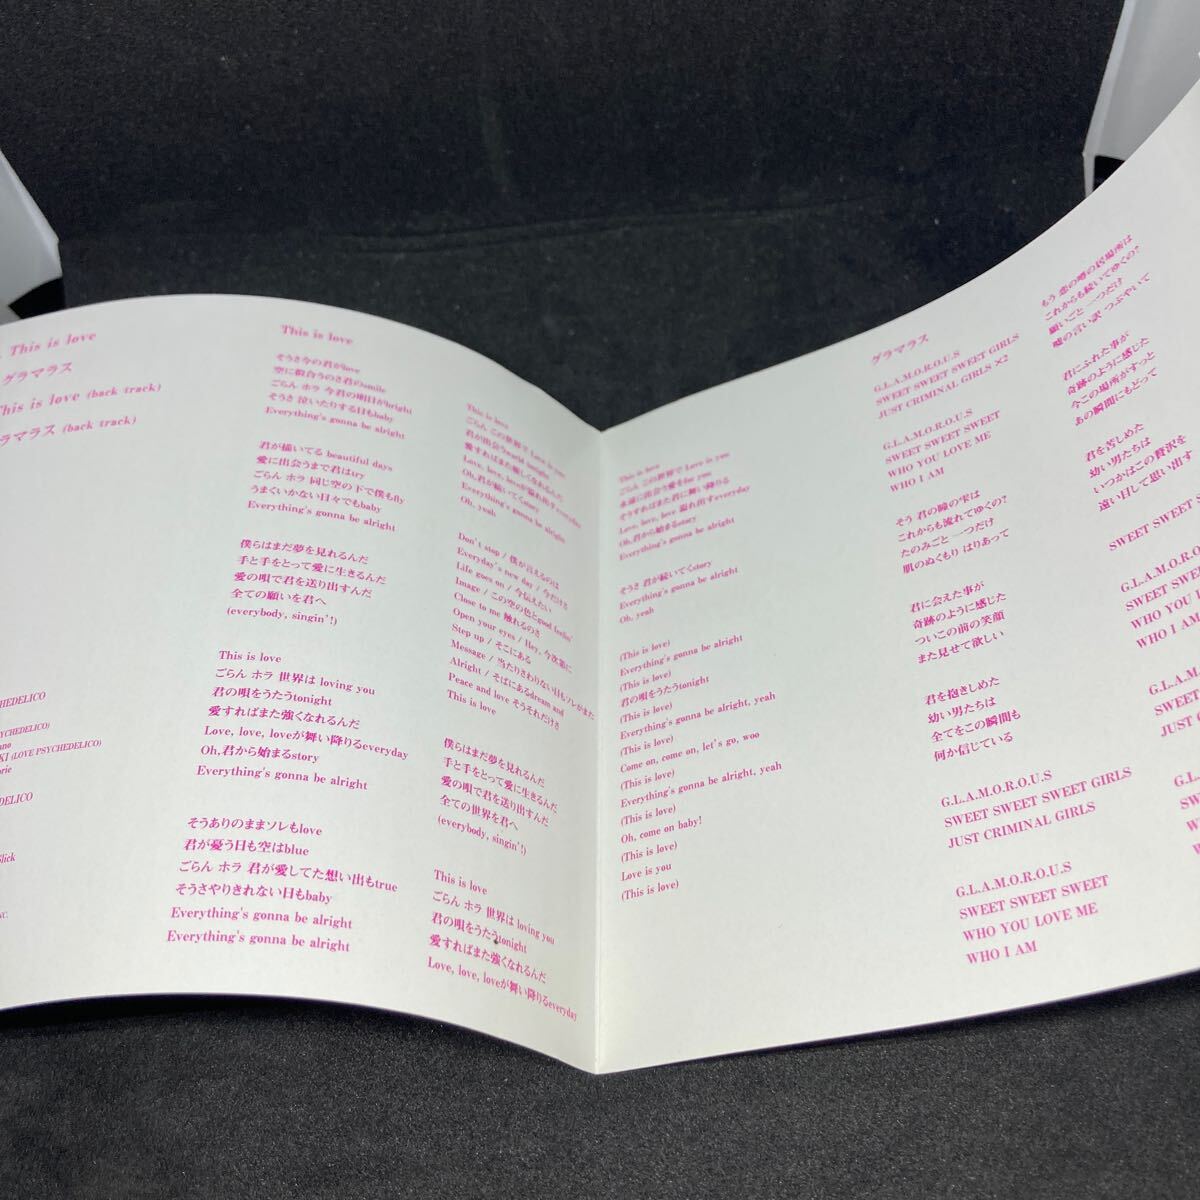 This is love
グラマラス
This is love (back track)
ラマラス (back track)
HEDELICO
SYCHEDELICO)
KI (LOVE PSYCHEDELICO)
DELICO
lick
NC.
This is love
そうさ今の君がlove
空に似合うのさ君のsmile
ごらん ホラ 今君の明日がbright
そうさ 泣いたりする日もbaby
Everything's gonna be alright
君が描いてる beautiful days
愛に出会うまで君はtry
ごらん ホラ 同じ空の下で僕もfly
うまくいかない日々でもbaby
Everything's gonna be alright
僕らはまだ夢を見れるんだ
手と手をとって愛に生きるんだ
愛の唄で君を送り出すんだ
全ての願いを君へ
(everybody, singin'!)
This is love
ごらん ホラ 世界は loving you
君の唄をうたうtonight
愛すればまた強くなれるんだ
Love, love, loveが舞い降りるeveryday
Oh,君から始まるstory
Everything's gonna be alright
そうありのままソレもlove
君が憂う日も空はblue
ごらん ホラ 君が愛してた想い出もtrue
そうさやりきれない日もbaby
Everything's gonna be alright
Everything's gonna be alright
This is love
ごらん この世界で Love is you
君が出会うworld tonight
愛すればまた優しくなれるんだ
Love, love, loveが溢れ出す everyday
Oh,君が描いてくstory
Everything's gonna be alright
Oh, yeah
Don't stop / 僕が言えるのは
Everyday's new day / 今だける
Life goes on / 今伝えたい
Image / この空の色とgood feelin'
Close to me 触れるのさ
Open your eyes / Hey, 今次第に
Step up / そこにある
Message / 当たりさわりない日もソレがまた
Alright / そばにあるdream and
Peace and love そうそれだけさ
This is love
僕らはまだ夢を見れるんだ
手と手をとって愛に生きるんだ
愛の唄で君を送り出すんだ
全ての世界を君へ
(everybody, singin'!)
This is love
ごらん ホラ 世界は loving you
君の唄をうたうtonight
愛すればまた強くなれるんだ
Love, love, loveが舞い降りるeveryday
This is love
ごらん この世界で Love is you
永遠に出会う愛をfor you
そうすればまた君に舞い降りる
Love, love, love 溢れ出すeveryday
Oh,君から始まるstory
Everything's gonna be alright
そうさ 君が続いてくstory
Everything's gonna be alright
Oh, yeah
(This is love)
Everything's gonna be alright
(This is love)
君の唄をうたうtonight
(This is love)
Everything's gonna be alright, yeah
(This is love)
Come on, come on, let's go, woo
(This is love)
Everything's gonna be alright, yeah
(This is love)
Oh, come on baby!
(This is love)
Love is you
(This is love)
グラマラス
G.L.A.M.O.R.O.U.S
SWEET SWEET SWEET GIRLS
JUST CRIMINAL GIRLS ×2
G.L.A.M.O.R.O.U.S
SWEET SWEET SWEET
WHO YOU LOVE ME
WHO I AM
そう 君の瞳の雫は
これからも流れてゆくの?
たのみごと 一つだけ
肌のぬくもり はりあって
君に会えた事が
奇跡のように感じた
ついこの前の笑顔
また見せて欲しい
君を抱きしめた
幼い男たちは
全てをこの瞬間も
何か信じている
G.L.A.M.O.R.O.U.S
SWEET SWEET SWEET GIRLS
JUST CRIMINAL GIRLS
G.L.A.M.O.R.O.U.S
SWEET SWEET SWEET
WHO YOU LOVE ME
WHO I AM
もう 恋の噂の居場所は
これからも続いてゆくの?
願いごと 一つだけ
嘘の言い訳 つぶやいて
君にふれた事が
奇跡のように感じた
今この場所がずっと
あの瞬間にもどって
君を苦しめた
幼い男たちは
いつかはこの贅沢を
遠い日して思い出す
SWEET SWEET S
G.L.A.M.O.R.O.U
SWEET SWEE
WHO YOU LO
WHO I AM
G.L.A.M.
SWEET
JUST C
G.L.A
SWE
W